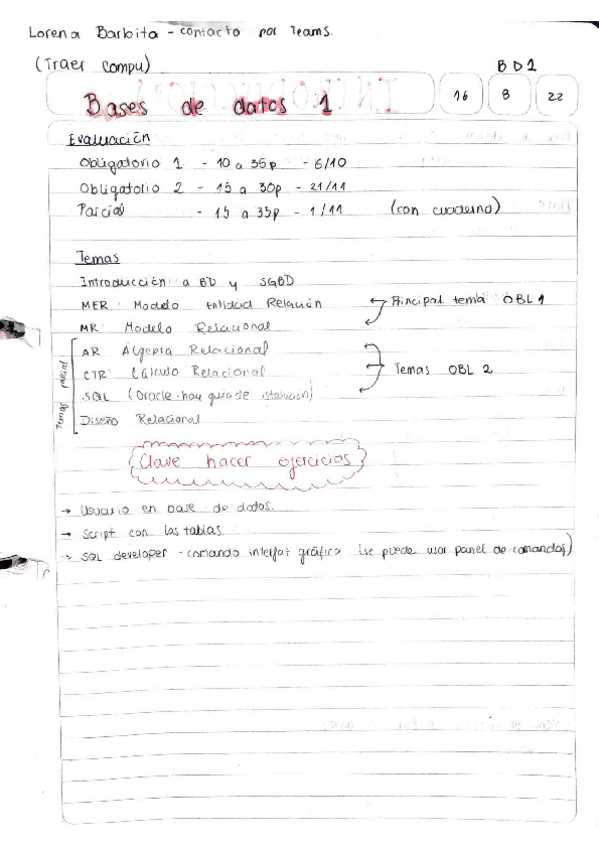 Lorena Barbita - contacto por Teams.
(Traer compu)
BD1
Bases de datos 1
16 8 22
Evaluación
Obligatorio 1 - 10 a 35p - 6/10
Obligatorio 2 - 15 a 30p - 21/11
Parcial - 15 a 35p - 1/11 (con cuaderno)
Temas
Introducción a BD y SGBD
MER Modelo Entidad Relación Principal tema OBL 1
MR Modelo Relacional
AR Álgebra Relacional
CTR Cálculo Relacional Temas OBL 2
SQL (Oracle-hay guía de instalación)
Diseño Relacional
Temas parcial
Clave hacer ejercicios
→ Usuario en base de datos.
→ Script con las tablas
→ SQL developer - comando interfaz gráfica (se puede usar panel de comandos)